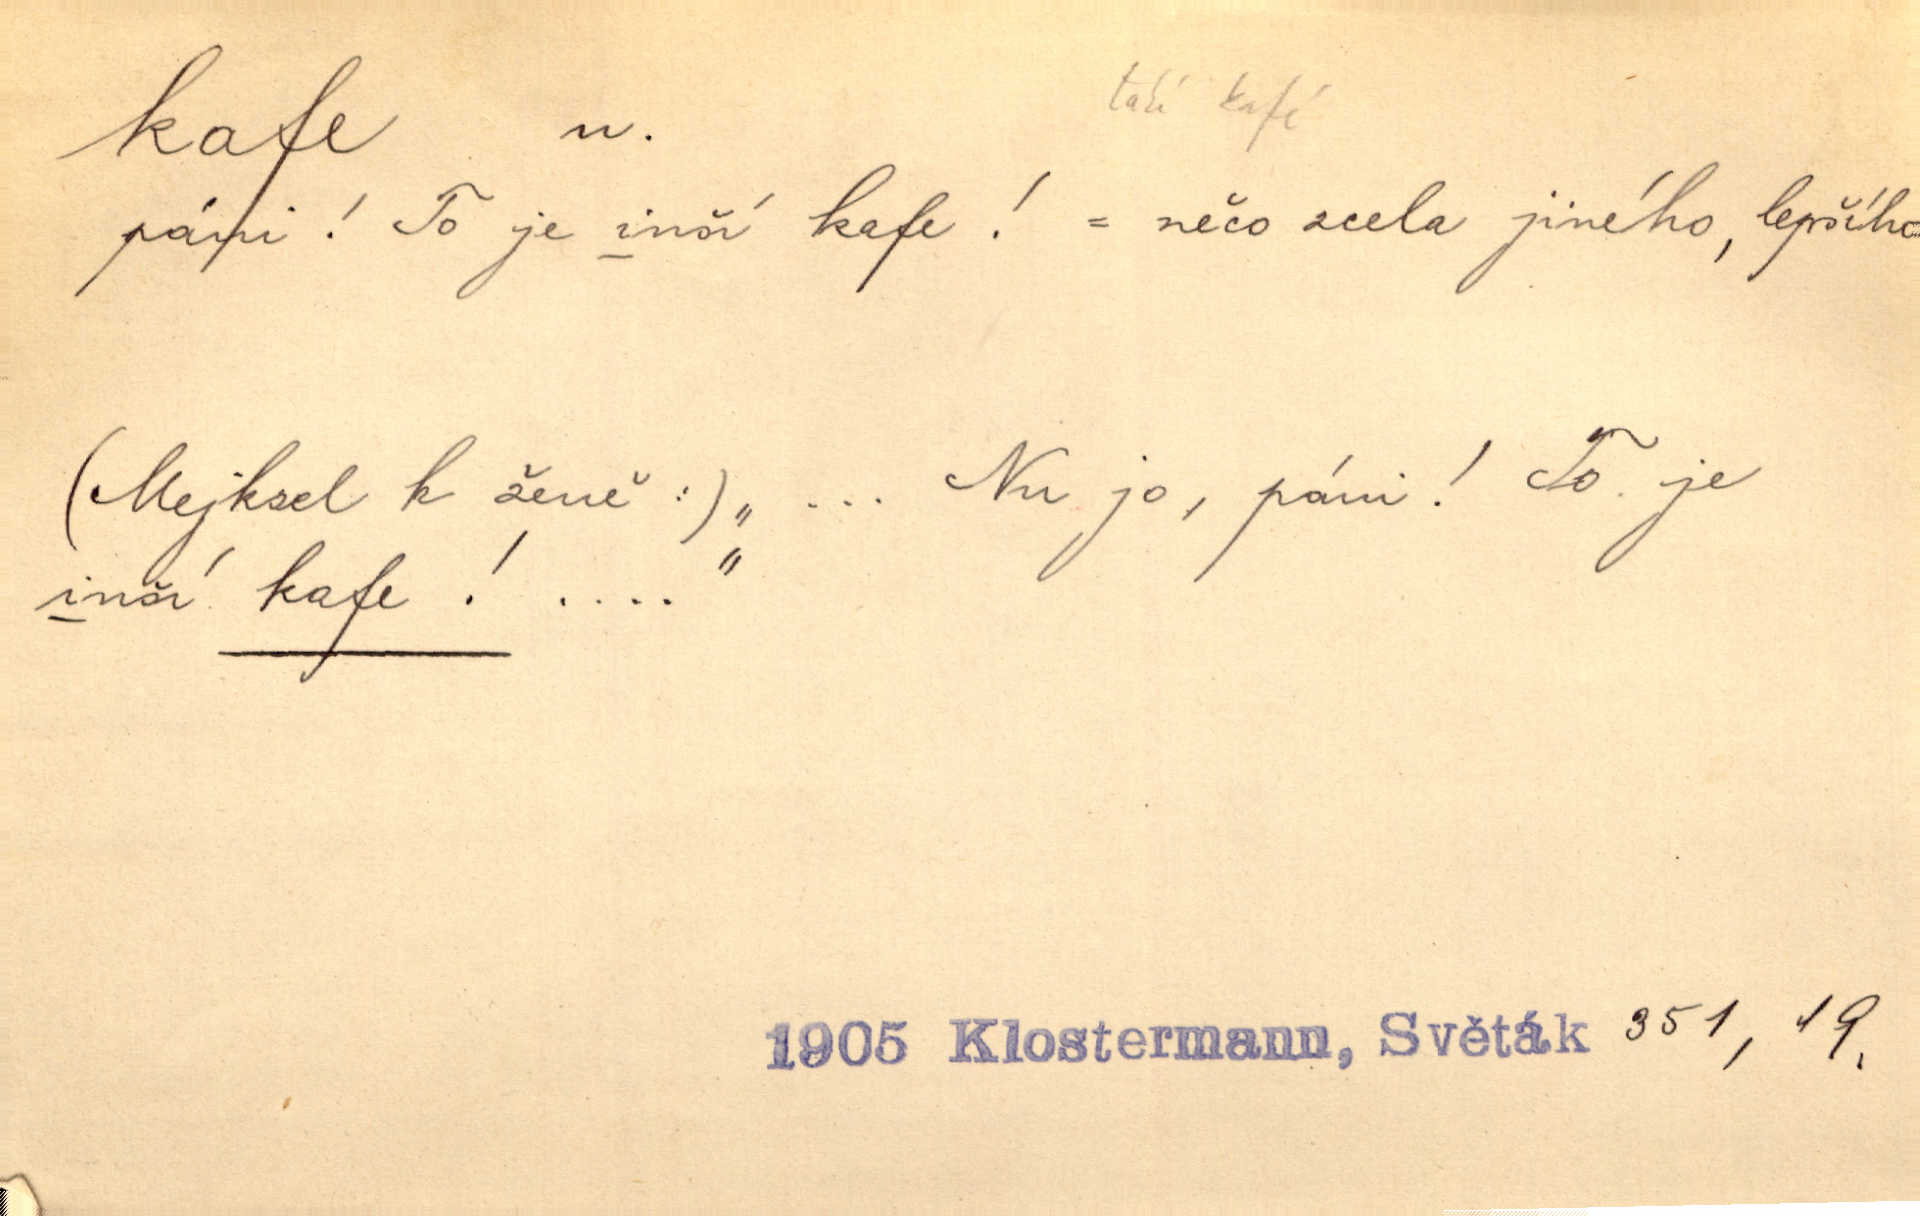 kafe n.
páni! To je inší kafe! = něco zcela jiného, lepšího
(Mejksel k ženě:) „ ... Nu jo, páni! To je
inší kafe! ...."
1905 Klostermann, Světák 351, 19.